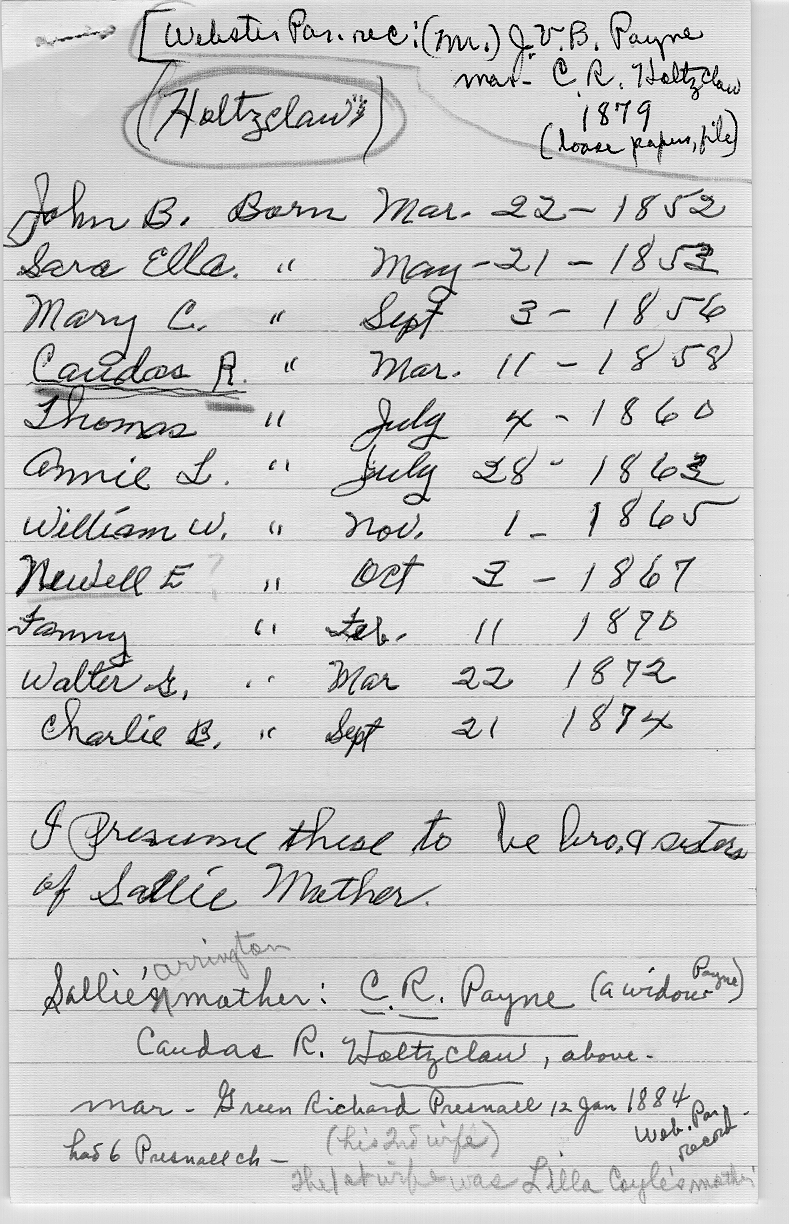 [Webster Par. rec: (Mr.) J.V.B. Payne
mar - C. R. Holtzclaw
1879
(loose papers, file)
(Holtzclaw's)
John B. Born Mar. 22 - 1852
Sara Ella. " May - 21 - 1853
Mary C. " Sept 3 - 1856
Caudas R. " Mar. 11 - 1858
Thomas " July 4 - 1860
Annie L. " July 28 - 1863
William W. " Nov. 1 - 1865
Newell E ? " Oct 3 - 1867
Fanny " Feb. 11 1870
Walter G. " Mar 22 1872
Charlie B. " Sept 21 1874
I presume these to be bro. & sisters
of Sallie Mother.
arrington
Sallie's mother: C. R. Payne (a widow Payne)
Caudas R. Holtzclaw, above -
mar - Green Richard Presnall 12 Jan 1884
Web. Par. record -
had 6 Presnall ch - (his 2nd wife)
The 1st wife was Lilla Coyle's mother